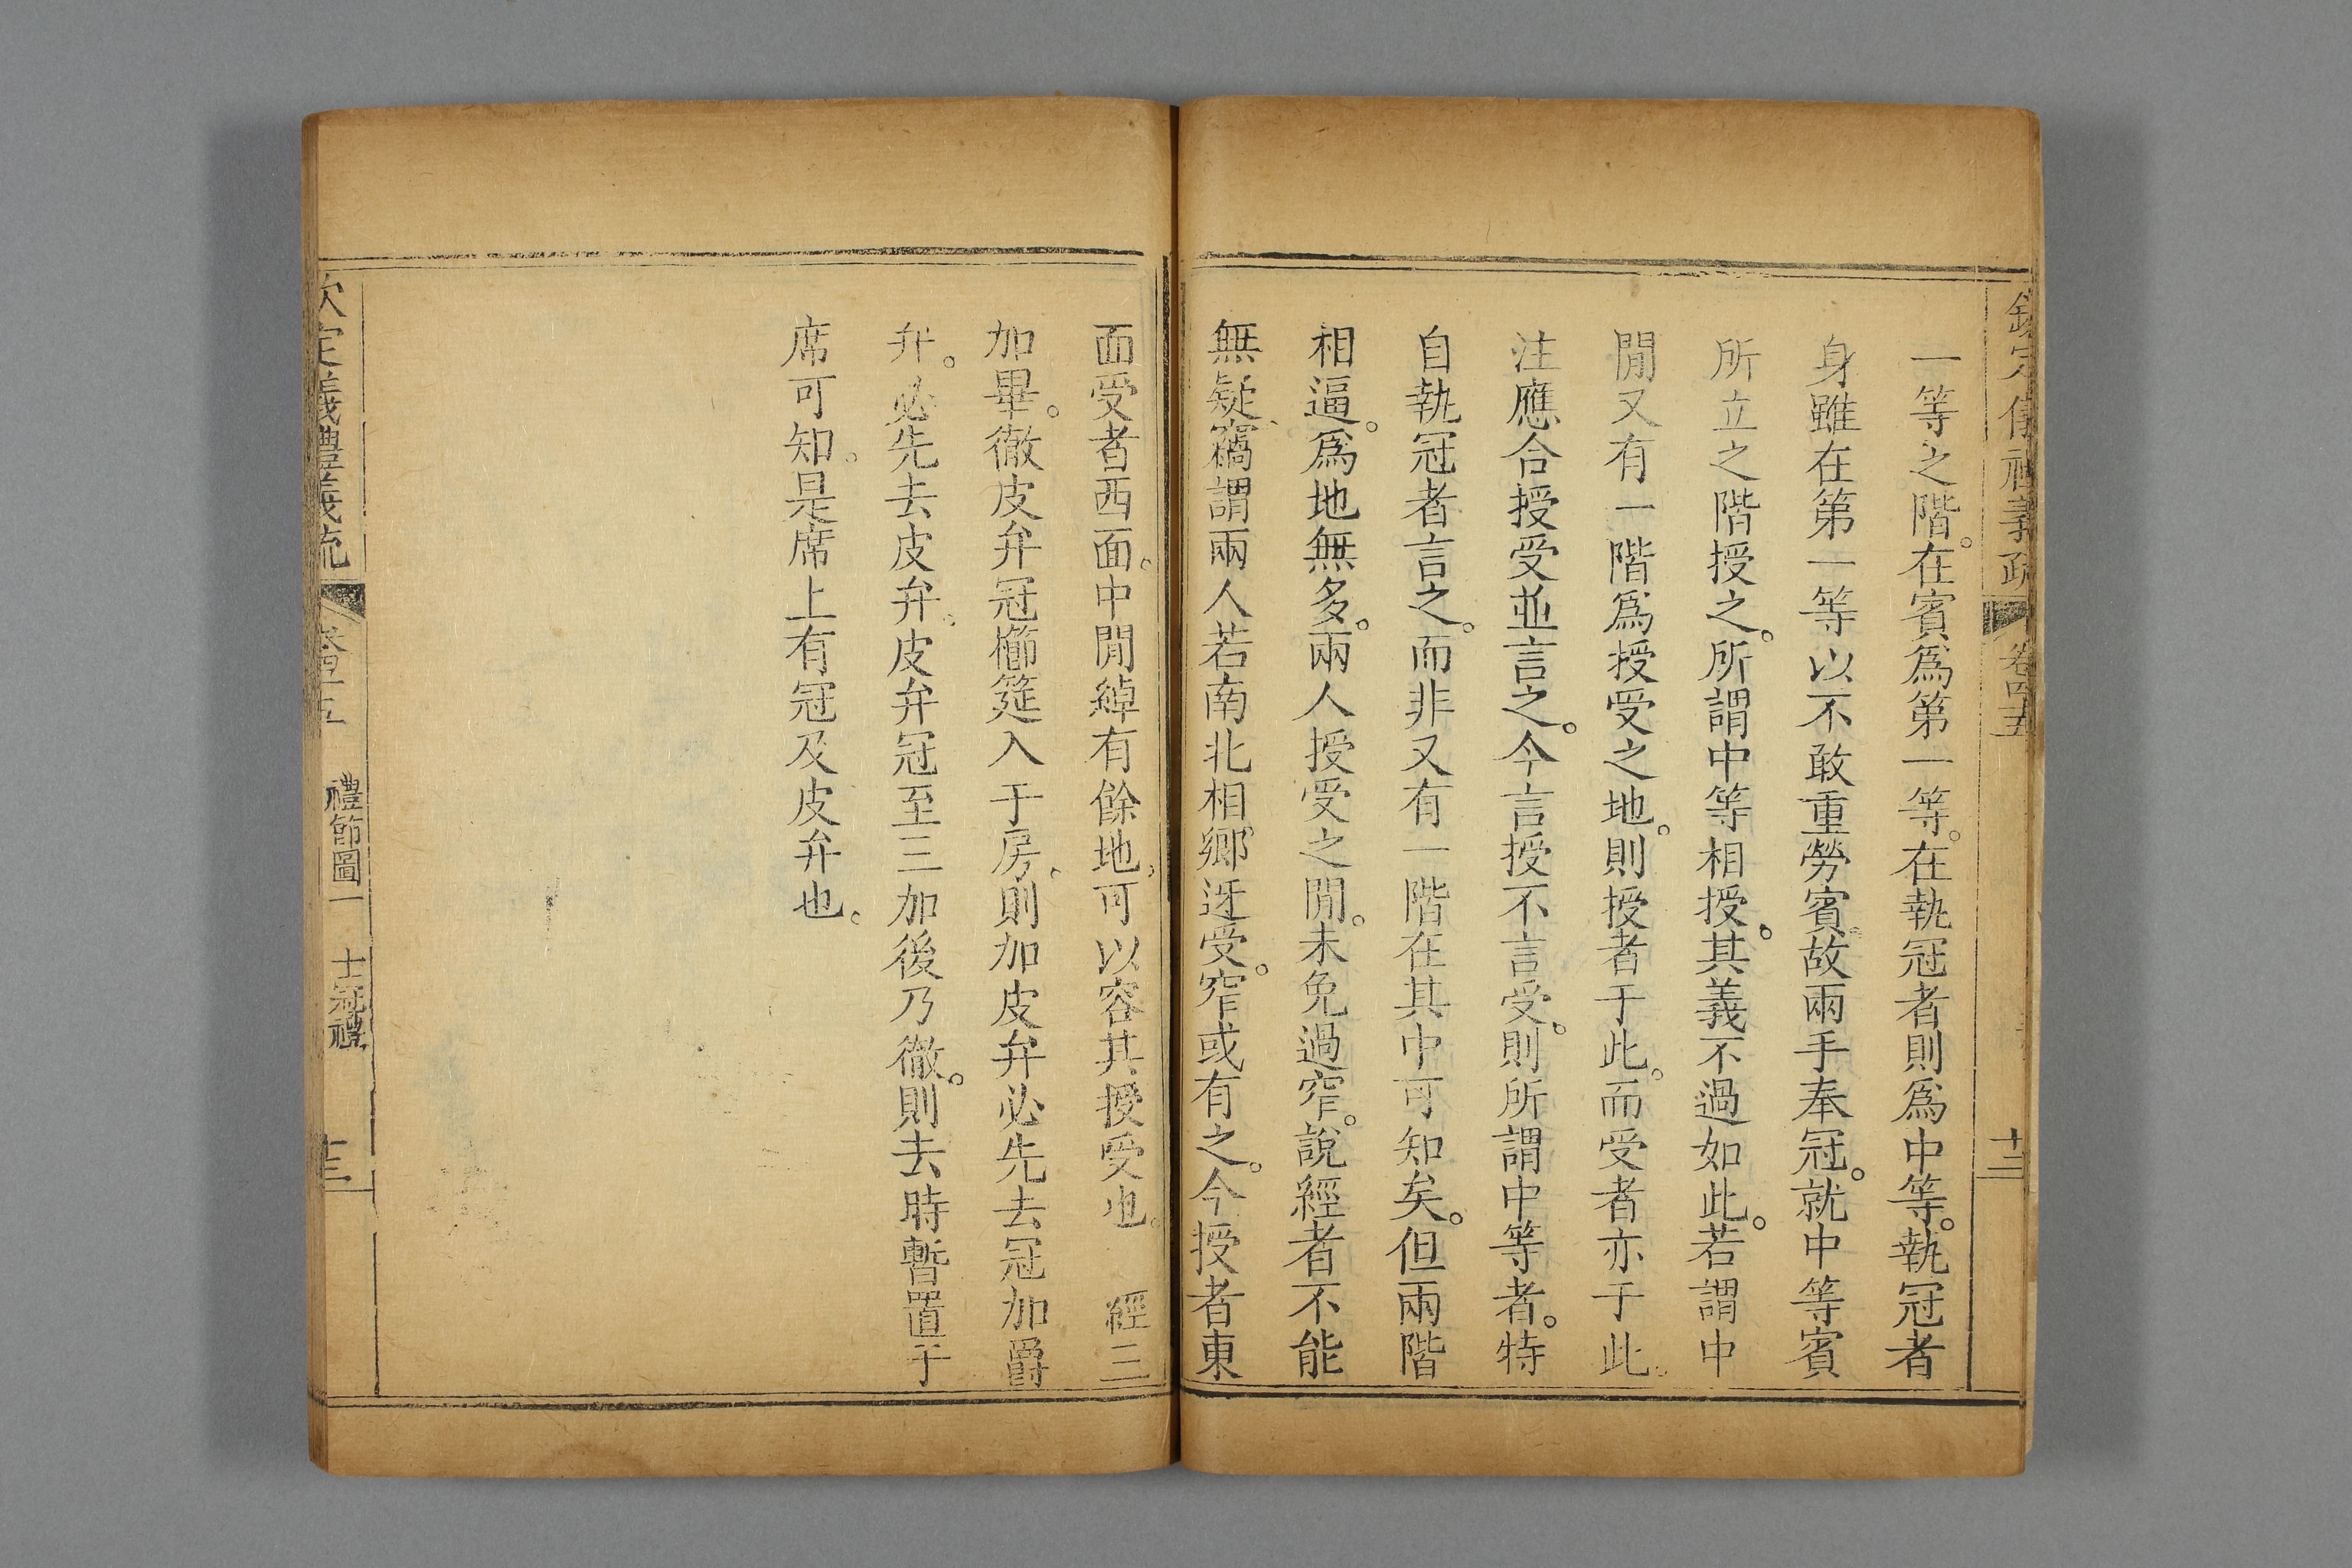 欽定儀禮義疏 卷四十五 十二
一等之階。在賓爲第一等。在執冠者則爲中等。執冠者
身雖在第一等以不敢重勞賓。故兩手奉冠。就中等賓
所立之階授之。所謂中等相授。其義不過如此。若謂中
閒又有一階爲授受之地。則授者于此。而受者亦于此。
注應合授受並言之。今言授不言受。則所謂中等者。特
自執冠者言之。而非又有一階在其中可知矣。但兩階
相逼。爲地無多。兩人授受之閒。未免過窄。說經者不能
無疑、竊謂兩人若南北相鄉迓受。窄或有之。今授者東
面受者西面。中閒綽有餘地、可以容其授受也。 經三
加畢。徹皮弁冠櫛筵入于房、則加皮弁必先去冠加爵
弁。必先去皮弁。皮弁冠至三加後乃徹。則去時暫置于
席可知。是席上有冠及皮弁也。
欽定儀禮義疏 卷四十五 禮節圖一 士冠禮 十三